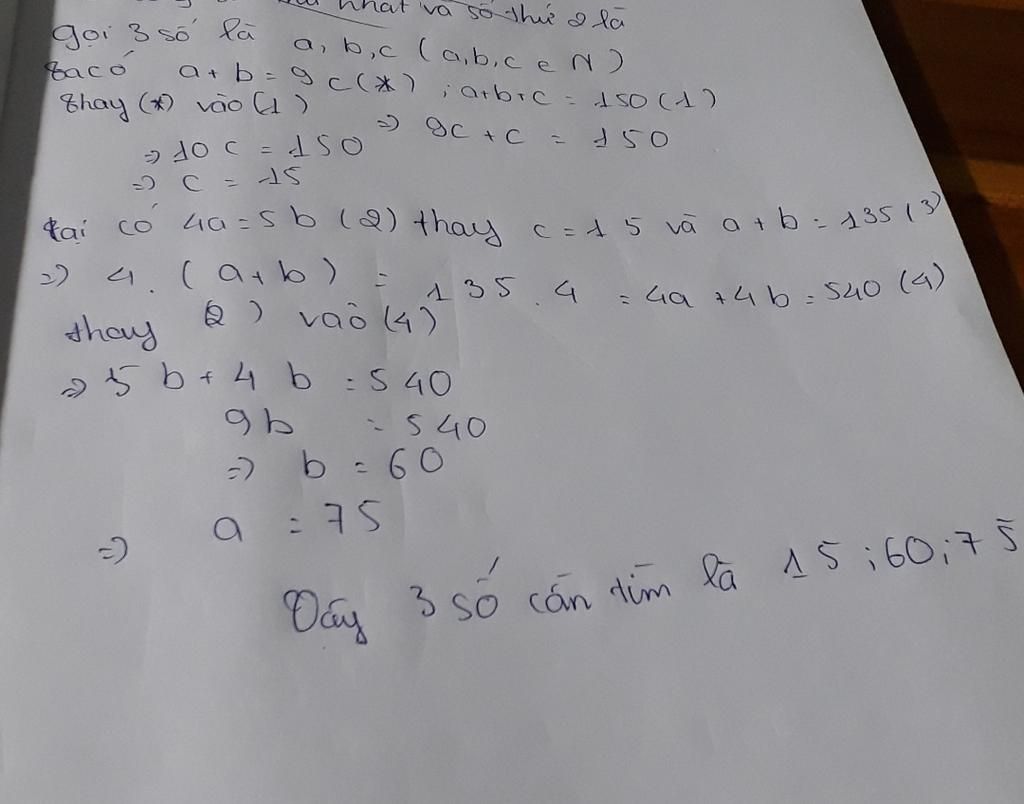 nhất và số thứ 2 là
gọi 3 số là a, b, c (a,b,c e N)
ta có a + b = 9 c (*) ; a+b+c = 150 (1)
thay (*) vào (1) => 9c + c = 150
=> 10 c = 150
=> c = 15
tại có 4a = 5 b (2) thay c = 15 và a + b = 135 (3)
=> 4. (a+b) = 135 . 4 = 4a + 4b = 540 (4)
thay (2) vào (4)
=> 5 b + 4 b = 540
9b = 540
=> b = 60
=> a = 75
Vậy 3 số cần tìm là 15 ; 60 ; 75